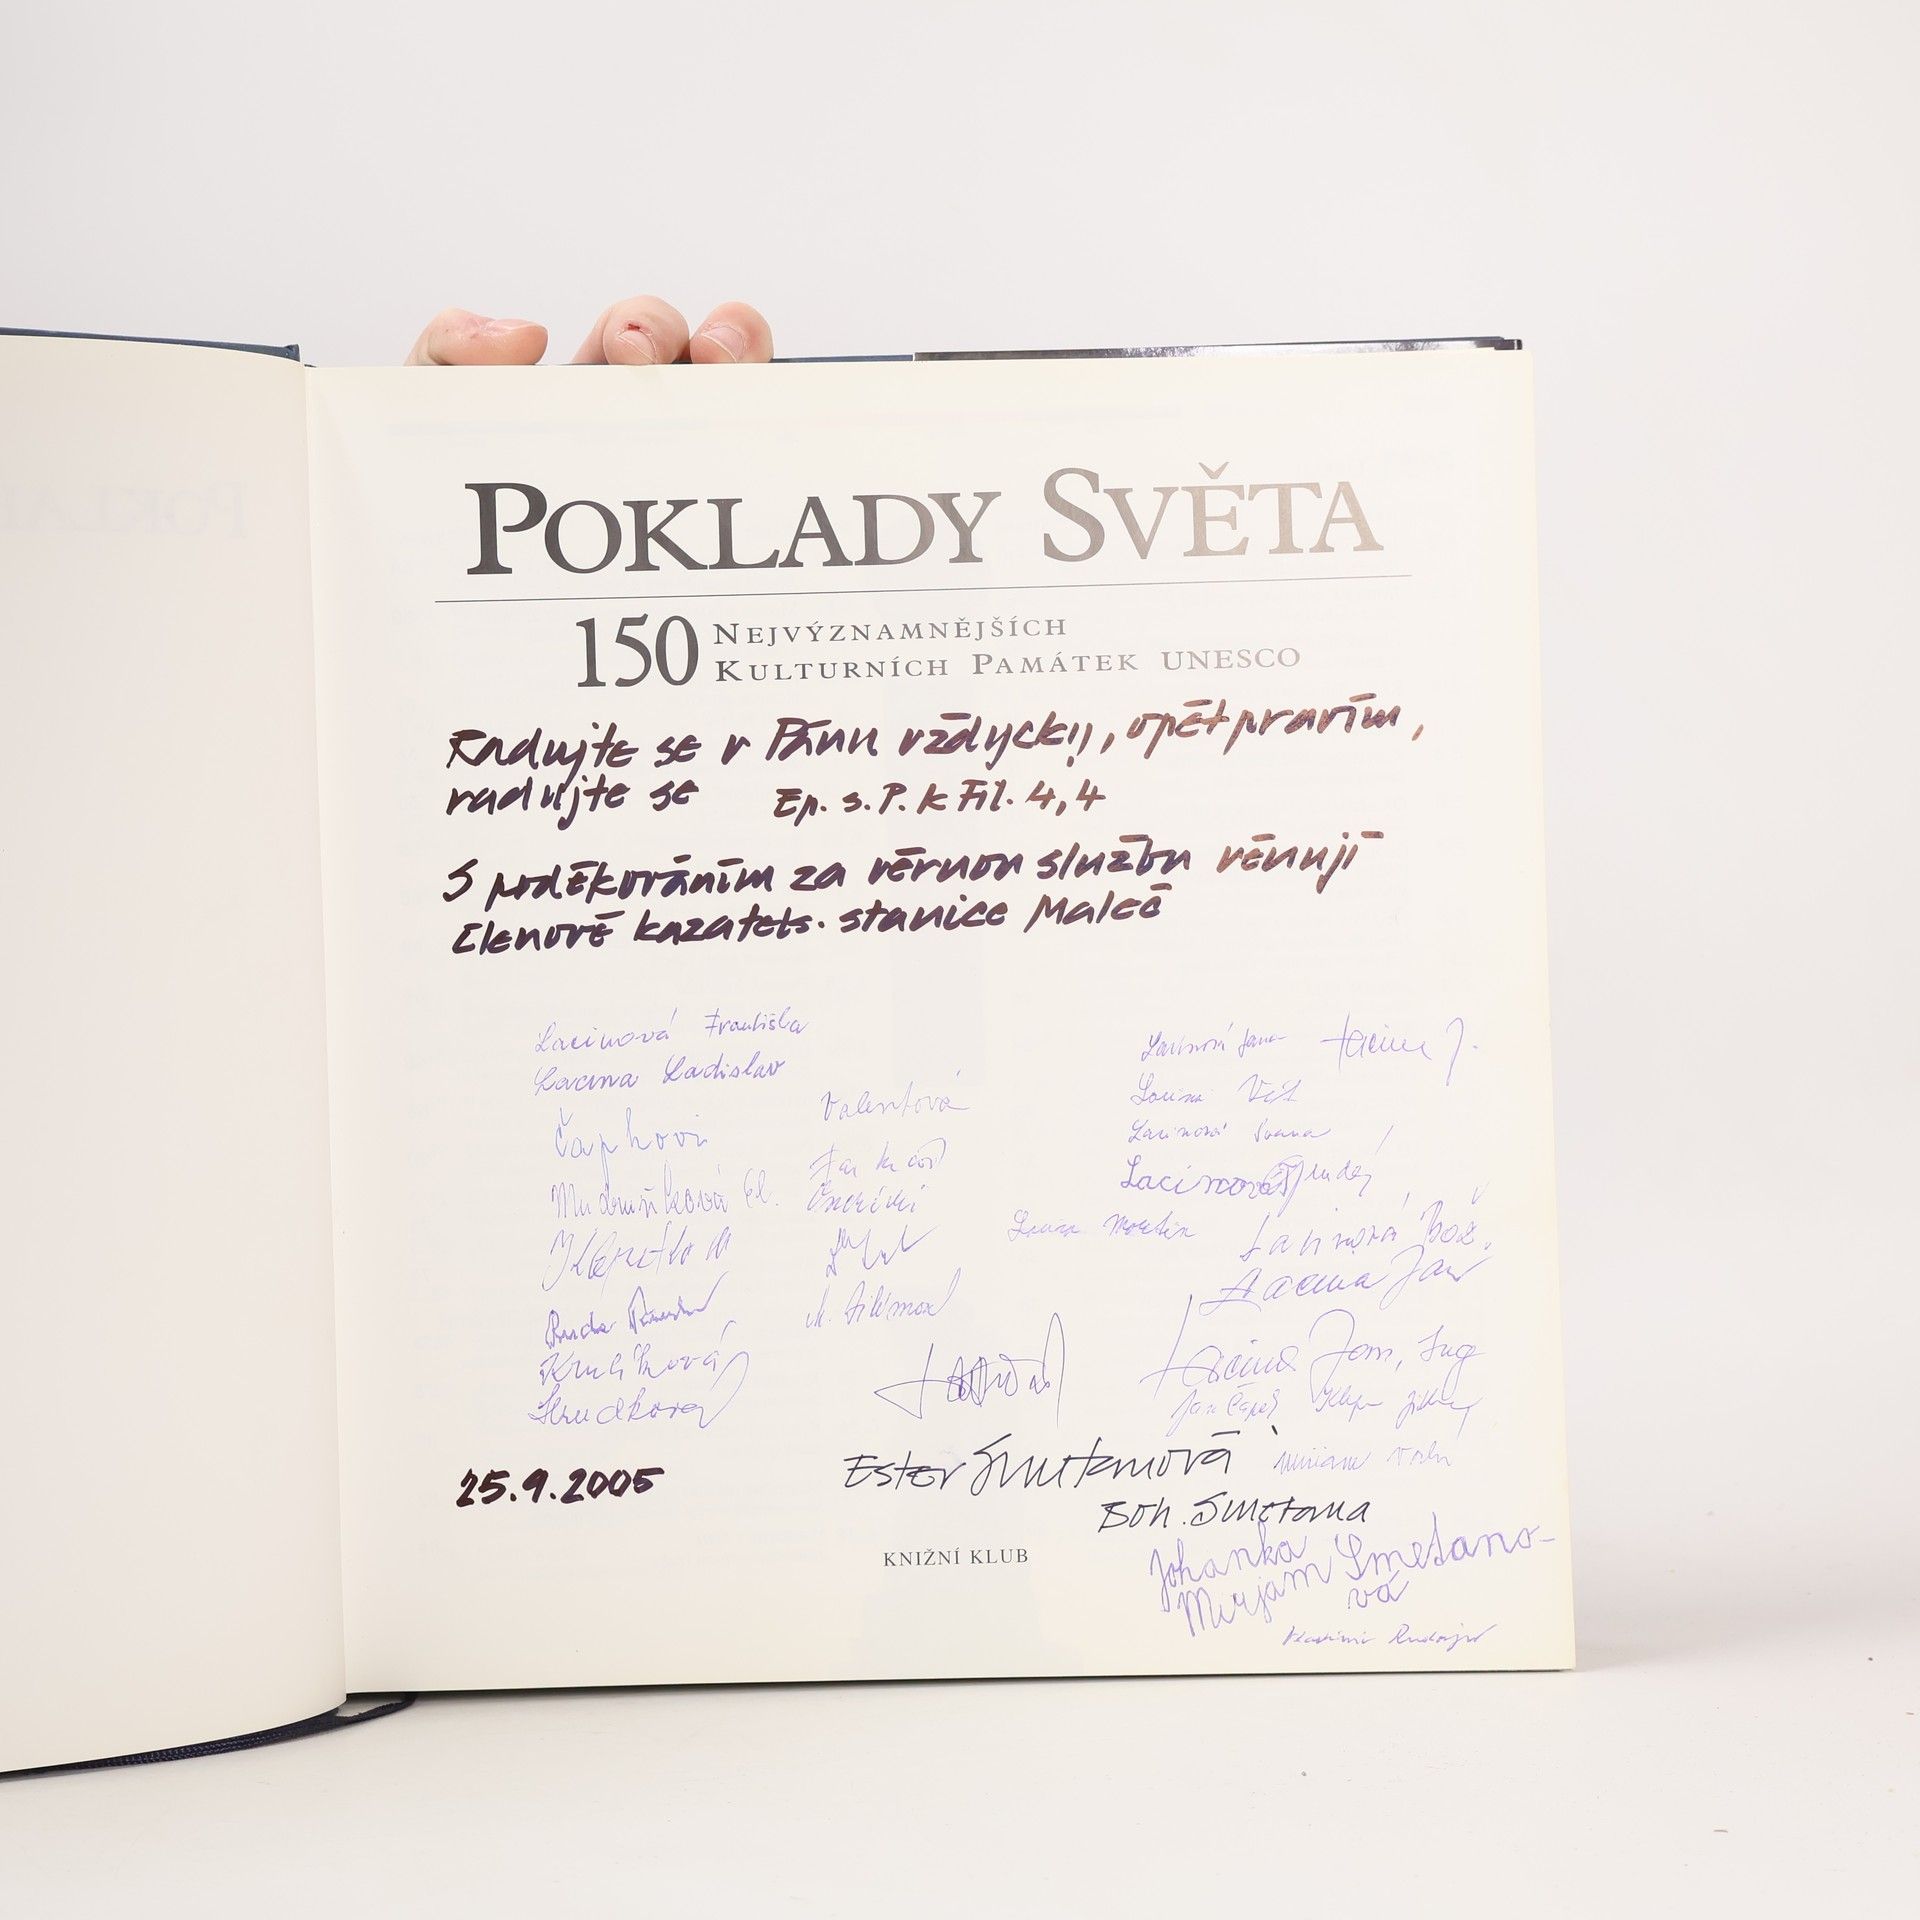 POKLADY SVĚTA
150 NEJVÝZNAMNĚJŠÍCH
KULTURNÍCH PAMÁTEK UNESCO
Radujte se v Pánu vždycky, opět pravím,
radujte se Ep. s. P. k Fil. 4,4
S poděkováním za věrnou službu věnují
členové kazatels. stanice Maleč
Lacinová Františka
Lacina Ladislav
Čapkovi
Valentová
Krulíková
Hrudková
Lacinová Jana
Lacina J.
Lacina Vít
Lacinová Ivana
Lacinová
Lacina Martin
Lacinová Bož.
Lacina Jan
Lacina Jan, Ing
Jan Čapek
25.9.2005
Ester Smetanová
Boh. Smetana
KNIŽNÍ KLUB
Johanka
Mirjam Smetano-
vá